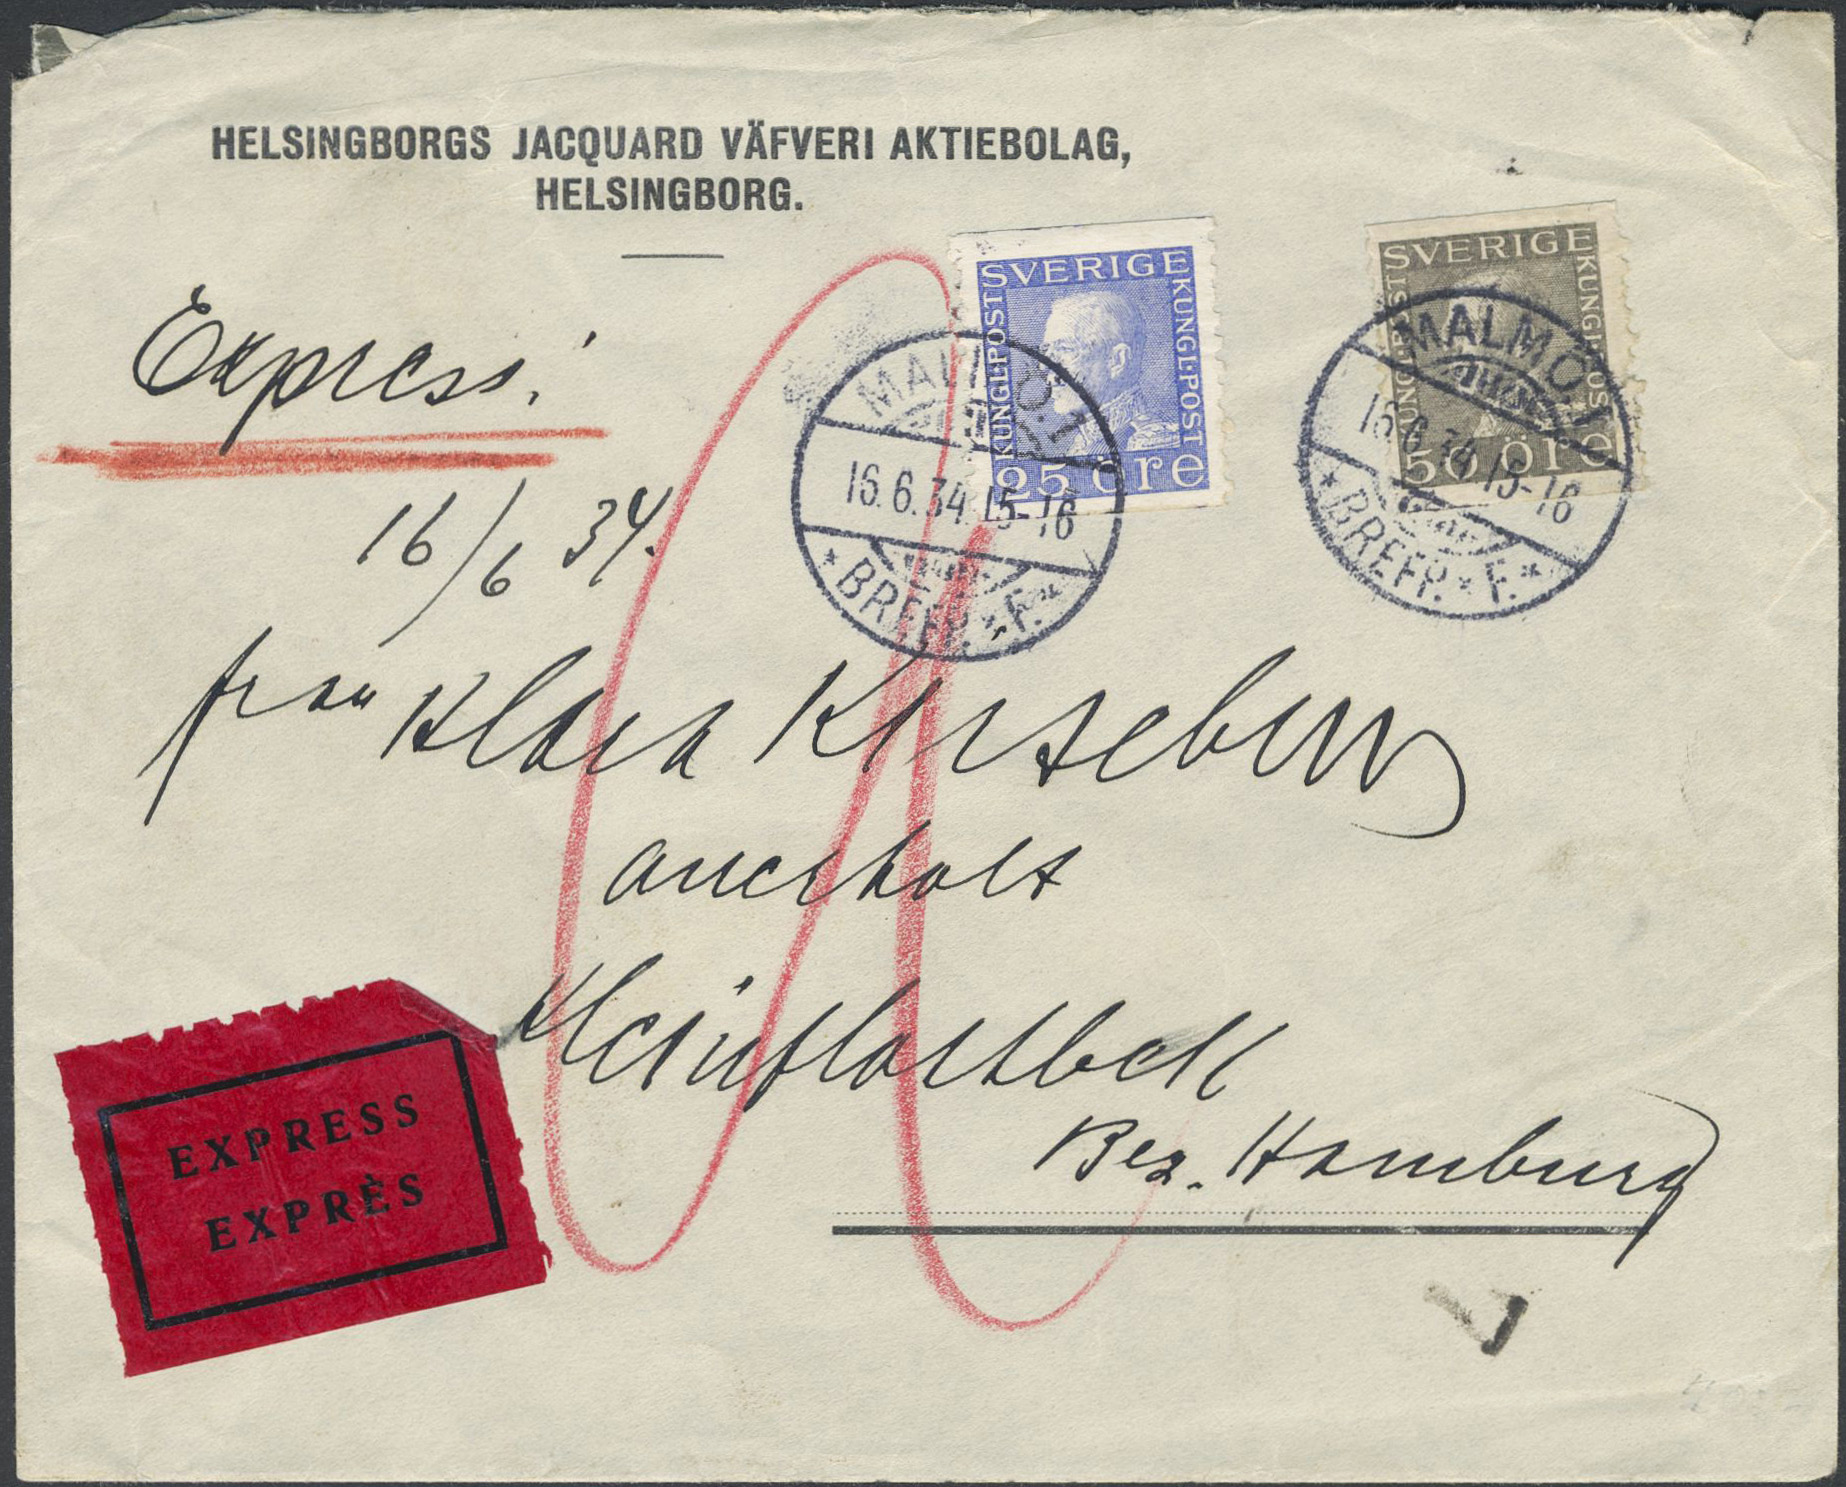 HELSINGBORGS JACQUARD VÄFVERI AKTIEBOLAG,
HELSINGBORG.
SVERIGE
KUNGL. POST
KUNGL. POST
25 öre
SVERIGE
KUNGL. POST
KUNGL. POST
50 öre
MALMÖ. 1
16.6.34.15-16
* BREFP. * F. *
MALMÖ. 1
16.6.34.15-16
* BREFP. * F. *
Express!
16/6 34.
frau Klara
Bez. Hamburg
EXPRESS
EXPRÈS